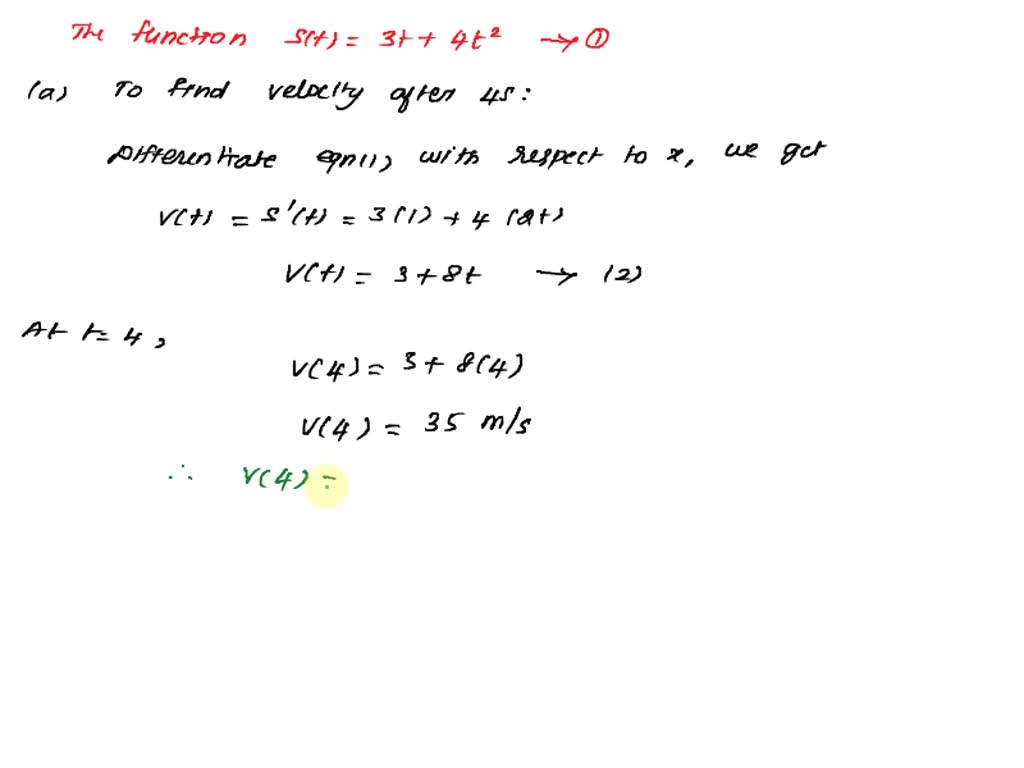 The function S(t) = 3t + 4t² → ①
(a) To find velocity after 4s:
Differentiate eqn(1), with respect to x, we get
V(t) = S'(t) = 3(1) + 4(2t)
V(t) = 3 + 8t → (2)
At t = 4,
V(4) = 3 + 8(4)
V(4) = 35 m/s
∴ V(4) =